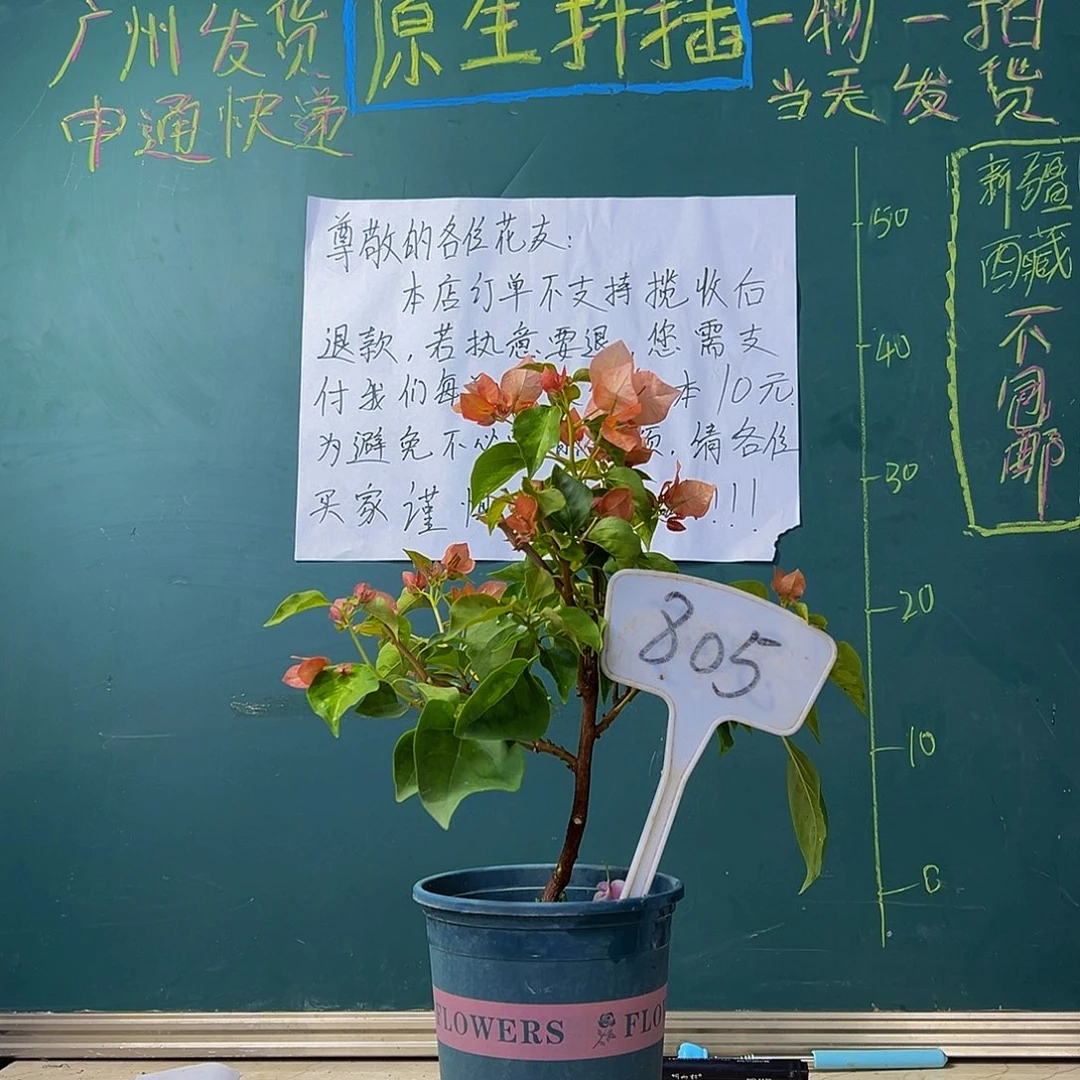 广州发货
申通快递
原生扦插
一物一拍
当天发货
新疆
西藏
不
包
邮
尊敬的各位花友:
本店订单不支持揽收后
退款,若执意要退,您需支
付我们每 本10元
为避免不必 ,请各位
买家谨慎 !!!
50
40
30
20
10
0
805
FLOWERS FLO